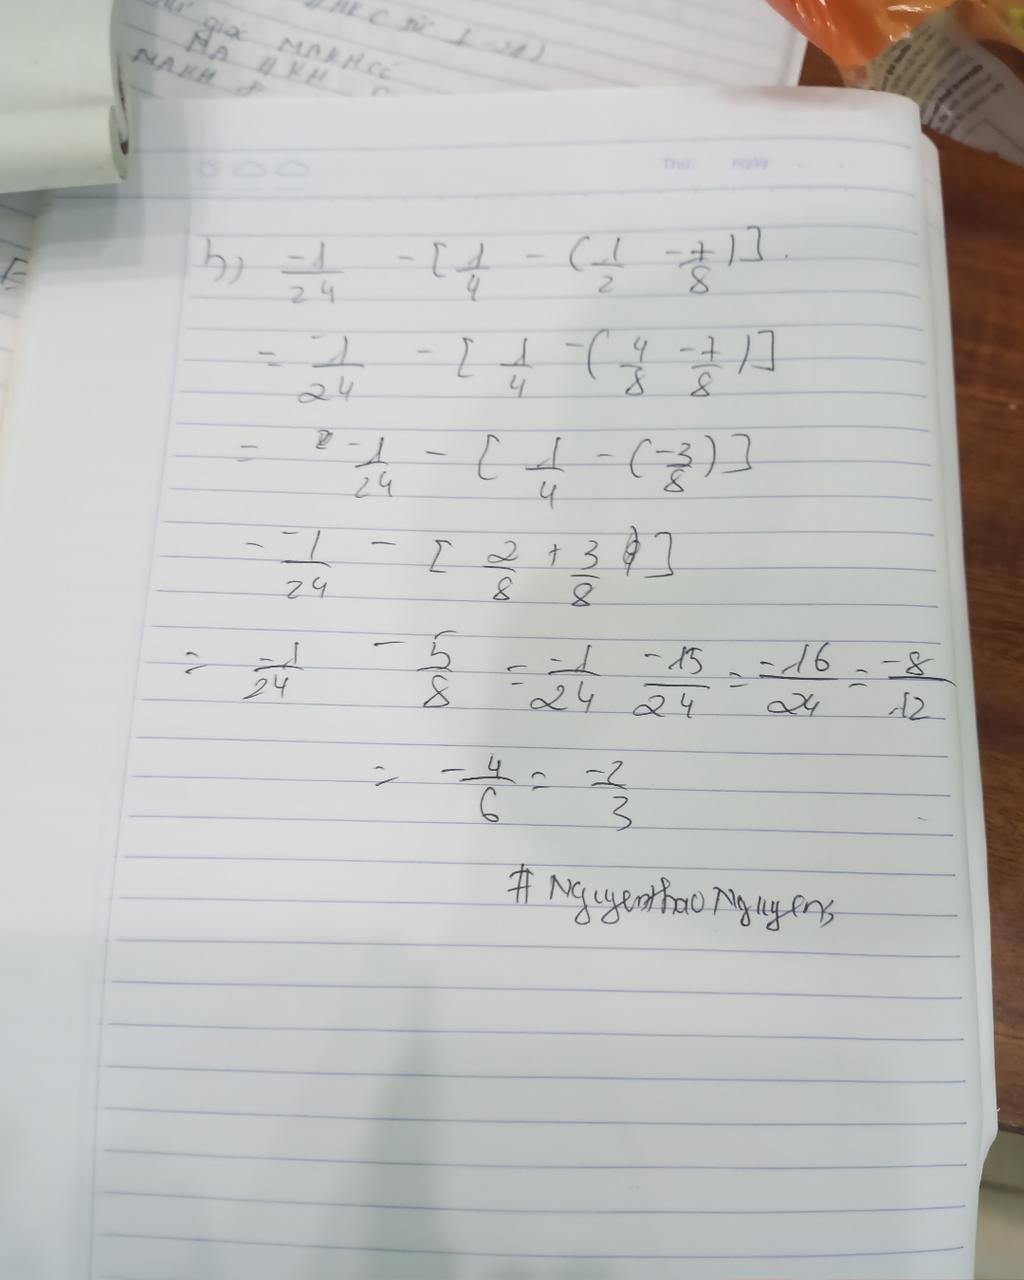 giác MAKHCó
MA // KH
MAKH
Thứ ngày
b) -1/24 - [1/4 - (1/2 - 7/8)].
= -1/24 - [1/4 - (4/8 - 7/8)]
= -1/24 - [1/4 - (-3/8)]
- -1/24 - [2/8 + 3/8]
= -1/24 - 5/8 = -1/24 -15/24 = -16/24 = -8/12
= -4/6 = -2/3
# NguyenthaoNguyens